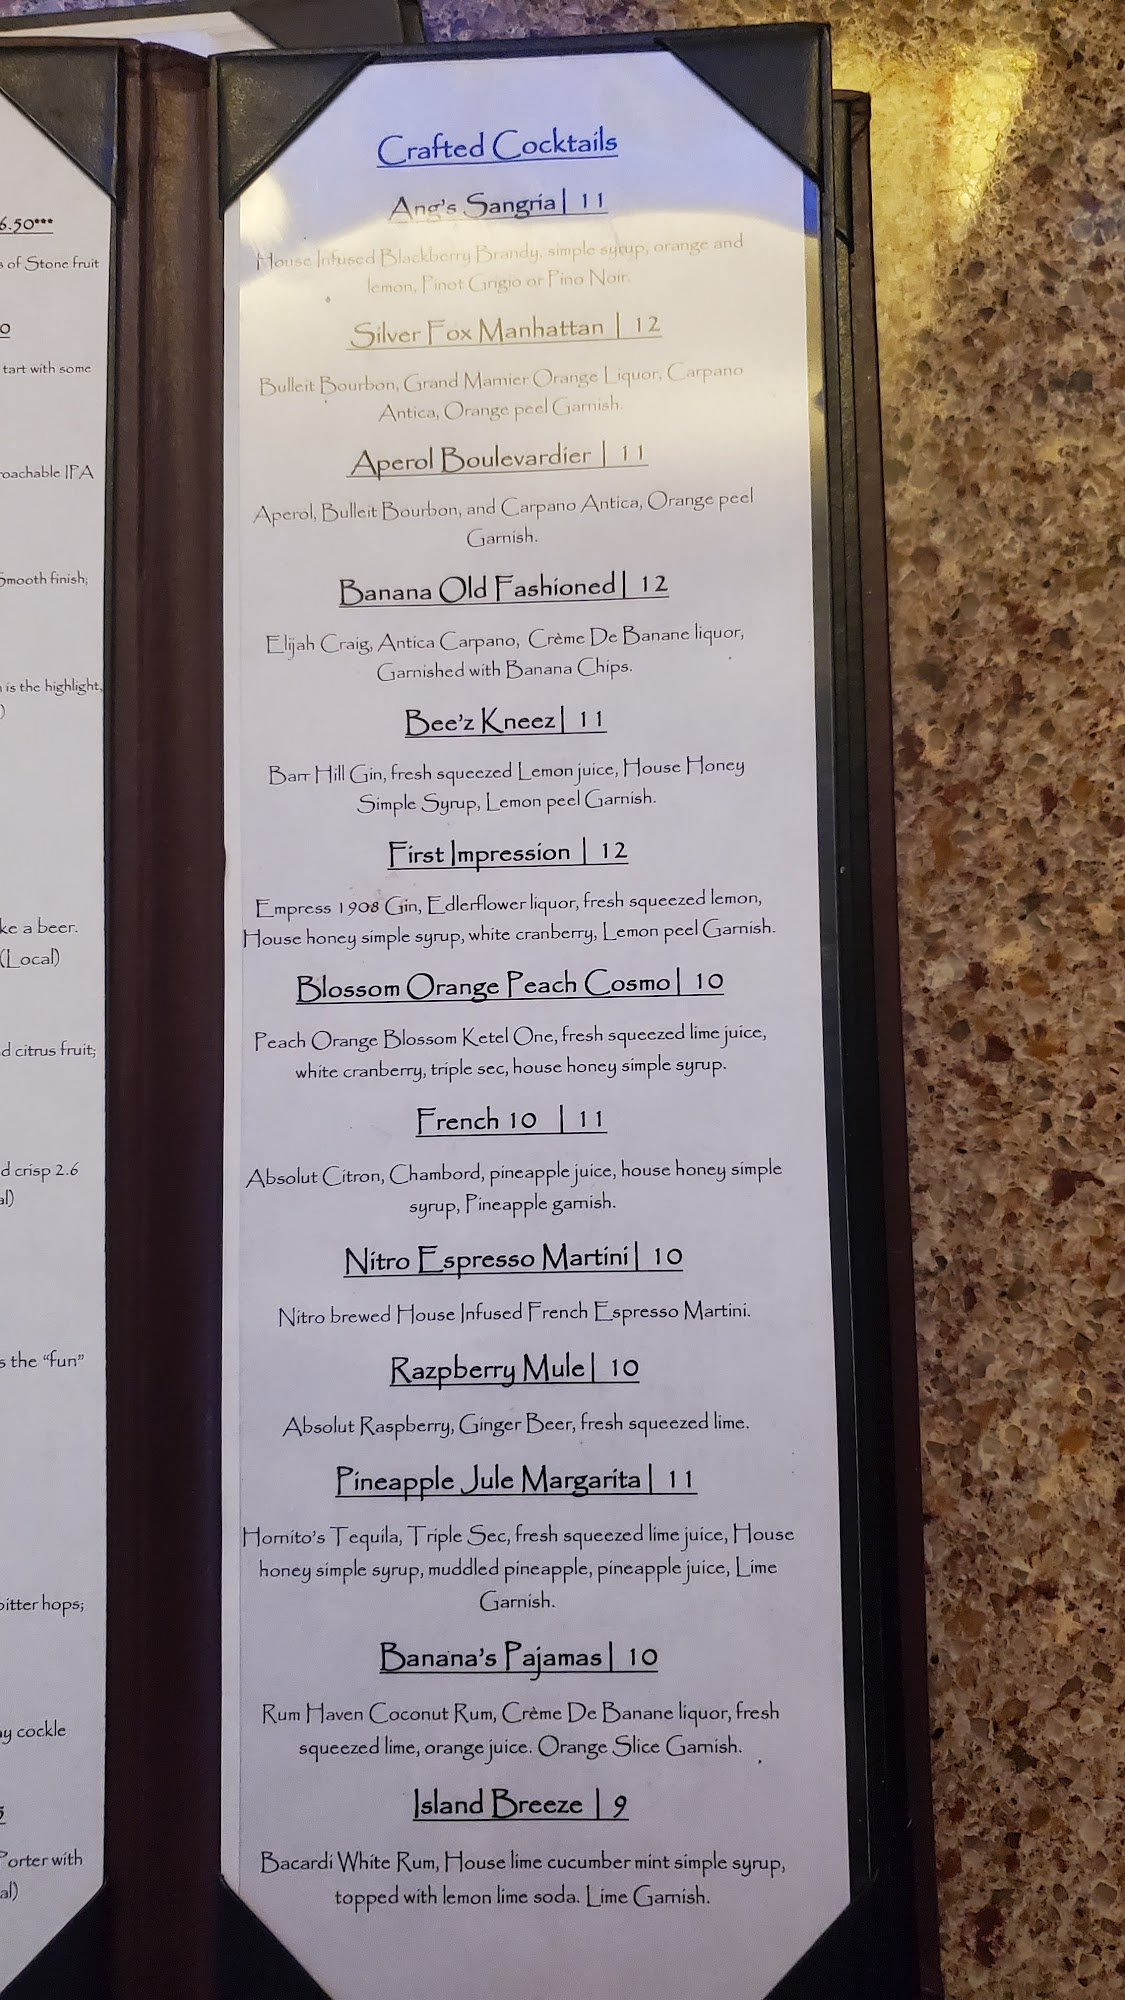 6.50***
s of Stone fruit
0
tart with some
roachable IPA
Smooth finish;
is the highlight,
)
ke a beer.
(Local)
d citrus fruit;
d crisp 2.6
al)
s the “fun”
bitter hops;
ay cockle
Porter with
al)
Crafted Cocktails
Ang's Sangria| 11
House Infused Blackberry Brandy, simple syrup, orange and
lemon, Pinot Grigio or Pino Noir.
Silver Fox Manhattan | 12
Bulleit Bourbon, Grand Marnier Orange Liquor, Carpano
Antica, Orange peel Garnish.
Aperol Boulevardier | 11
Aperol, Bulleit Bourbon, and Carpano Antica, Orange peel
Garnish.
Banana Old Fashioned| 12
Elijah Craig, Antica Carpano, Crème De Banane liquor,
Garnished with Banana Chips.
Bee'z Kneez| 11
Barr Hill Gin, fresh squeezed Lemon juice, House Honey
Simple Syrup, Lemon peel Garnish.
First Impression | 12
Empress 1908 Gin, Edlerflower liquor, fresh squeezed lemon,
House honey simple syrup, white cranberry, Lemon peel Garnish.
Blossom Orange Peach Cosmo| 10
Peach Orange Blossom Ketel One, fresh squeezed lime juice,
white cranberry, triple sec, house honey simple syrup.
French 10 | 11
Absolut Citron, Chambord, pineapple juice, house honey simple
syrup, Pineapple garnish.
Nitro Espresso Martini| 10
Nitro brewed House Infused French Espresso Martini.
Razpberry Mule| 10
Absolut Raspberry, Ginger Beer, fresh squeezed lime.
Pineapple Jule Margarita| 11
Hornito's Tequila, Triple Sec, fresh squeezed lime juice, House
honey simple syrup, muddled pineapple, pineapple juice, Lime
Garnish.
Banana's Pajamas| 10
Rum Haven Coconut Rum, Crème De Banane liquor, fresh
squeezed lime, orange juice. Orange Slice Garnish.
Island Breeze | 9
Bacardi White Rum, House lime cucumber mint simple syrup,
topped with lemon lime soda. Lime Garnish.